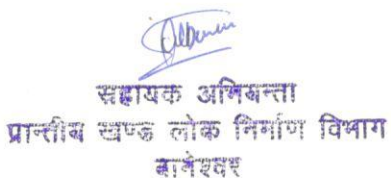 सहायक अभियन्ता
प्रान्तीय खण्ड लोक निर्माण विभाग
बागेश्वर